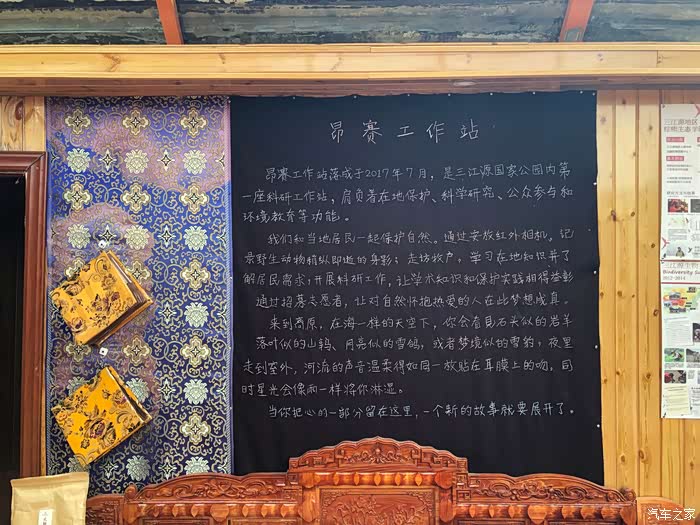 昂赛工作站
昂赛工作站落成于2017年7月，是三江源国家公园内第
一座科研工作站，肩负着在地保护、科学研究、公众参与和
环境教育等功能。
我们和当地居民一起保护自然。通过安放红外相机，记
录野生动物稍纵即逝的身影；走访牧户，学习在地知识并了
解居民需求；开展科研工作，让学术知识和保护实践相得益彰
通过招募志愿者，让对自然怀抱热爱的人在此梦想成真。
来到高原，在海一样的天空下，你会看见石头似的岩羊
落叶似的山鹑、月亮似的雪鸽，或者梦境似的雪豹；夜里
走到室外，河流的声音温柔得如同一枚贴在耳膜上的吻，同
时星光会像雨一样将你淋湿。
当你把心的一部分留在这里，一个新的故事就要展开了。
三江源地区
2012-2014
汽车之家